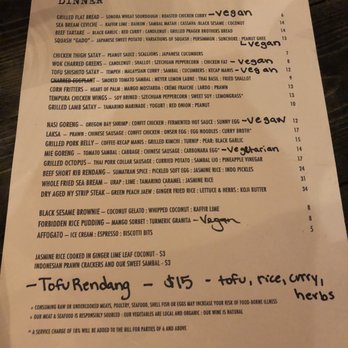 DINNER
GRILLED FLAT BREAD - SONORA WHEAT SOURDOUGH : ROASTED CHICKEN CURRY -vegan 6
SEA BREAM CEVICHE - KAFFIR LIME : DAIKON : SAMBAL MATAH : CASSAVA BLACK SESAME : COCONUT 14
BEEF TARTARE - BLACK GARLIC : RED CURRY : CANDLENUT : GRILLED PRAGER BROTHERS BREAD 14
SQUASH "GADO" - JAPANESE SWEET POTATO : VARIATIONS OF SQUASH : PERSIMMON : SUNCHOKE : PEANUT GHEE 13
vegan
CHICKEN THIGH SATAY - PEANUT SAUCE : SCALLIONS : JAPANESE CUCUMBERS 7
WOK CHARRED GREENS - CANDLENUT : LIPSON CHINESE SAUSAGE : CHICKEN FAT -vegan 8
TOFU SHISHITO SATAY - TEMPEH : MALAYSIAN CURRY : SAMBAL : CUCUMBERS : RECAP MANIS -vegan
CHARRED EGGPLANT - SMOKED TOMATO SAMBAL : MEYER LEMON LABNE : THAI BASIL : FRIED SHALLOT
CORN FRITTERS - HEART OF PALM : MONGO MOSTARDA : CRÈME FRAICHE : LARDO : PRAWN
TEMPURA CHICKEN WINGS - SOY BRINED : SZECHUAN PEPPERCORN : SWEET SOY : LEMONGRASS*
GRILLED LAMB SATAY - TAMARIND MARINADE : YOGURT : RED ONION : PEANUT
NASI GORENG - OREGON BAY SHRIMP : CONFIT CHICKEN : FERMENTED HOT SAUCE : SUNNY EGG -vegan 12
LAKSA - PRAWN : CHINESE SAUSAGE : CONFIT CHICKEN : ONSEN EGG : EGG NOODLES : CURRY BROTH*
GRILLED PORK BELLY - COFFEE-KECAP MANIS : GRILLED KIMCHI : TURNIP : PEAR : BLACK GARLIC
MIE GORENG - TOMATO SAMBAL : CABBAGE : CHINESE SAUSAGE : CARBONARA EGG* -vegetarian
GRILLED OCTOPUS - THAI PORK COLLAR SAUSAGE : CURRIED POTATO : SAMBAL IJO : PINEAPPLE VINEGAR
BEEF SHORT RIB RENDANG - SUMATRAN SPICE : PICKLED SOFT EGG : JASMINE RICE : INDO PICKLES
WHOLE FRIED SEA BREAM - URAP : LIME : TAMARIND CARAMEL : JASMINE RICE
DRY AGED NY STRIP STEAK - GREEN PEACH JAEW : GINGER FRIED RICE : LETTUCE & HERBS : KOJI BUTTER 34
BLACK SESAME BROWNIE - COCONUT GELATO : WHIPPED COCONUT : KAFFIR LIME 8
FORBIDDEN RICE PUDDING - MANGO SORBET : TURMERIC GRANITA -Vegan 8
AFFOGATO - ICE CREAM : ESPRESSO : BISCOTTI BITS 5
JASMINE RICE COOKED IN GINGER LIME LEAF COCONUT - $3
INDONESIAN PRAWN CRACKERS AND OUR SWEET SAMBAL - $3
-Tofu Rendang - $15 - tofu, rice, curry,
herbs
* CONSUMING RAW OR UNDERCOOKED MEATS, POULTRY, SEAFOOD, SHELL FISH OR EGGS MAY INCREASE YOUR RISK OF FOOD-BORNE ILLNESS
* OUR MEAT & SEAFOOD IS RESPONSIBLY SOURCED : OUR VEGETABLES ARE LOCAL AND ORGANIC : OUR WINE IS NATURAL
* A SERVICE CHARGE OF 18% WILL BE ADDED TO THE BILL FOR PARTIES OF 6 AND ABOVE